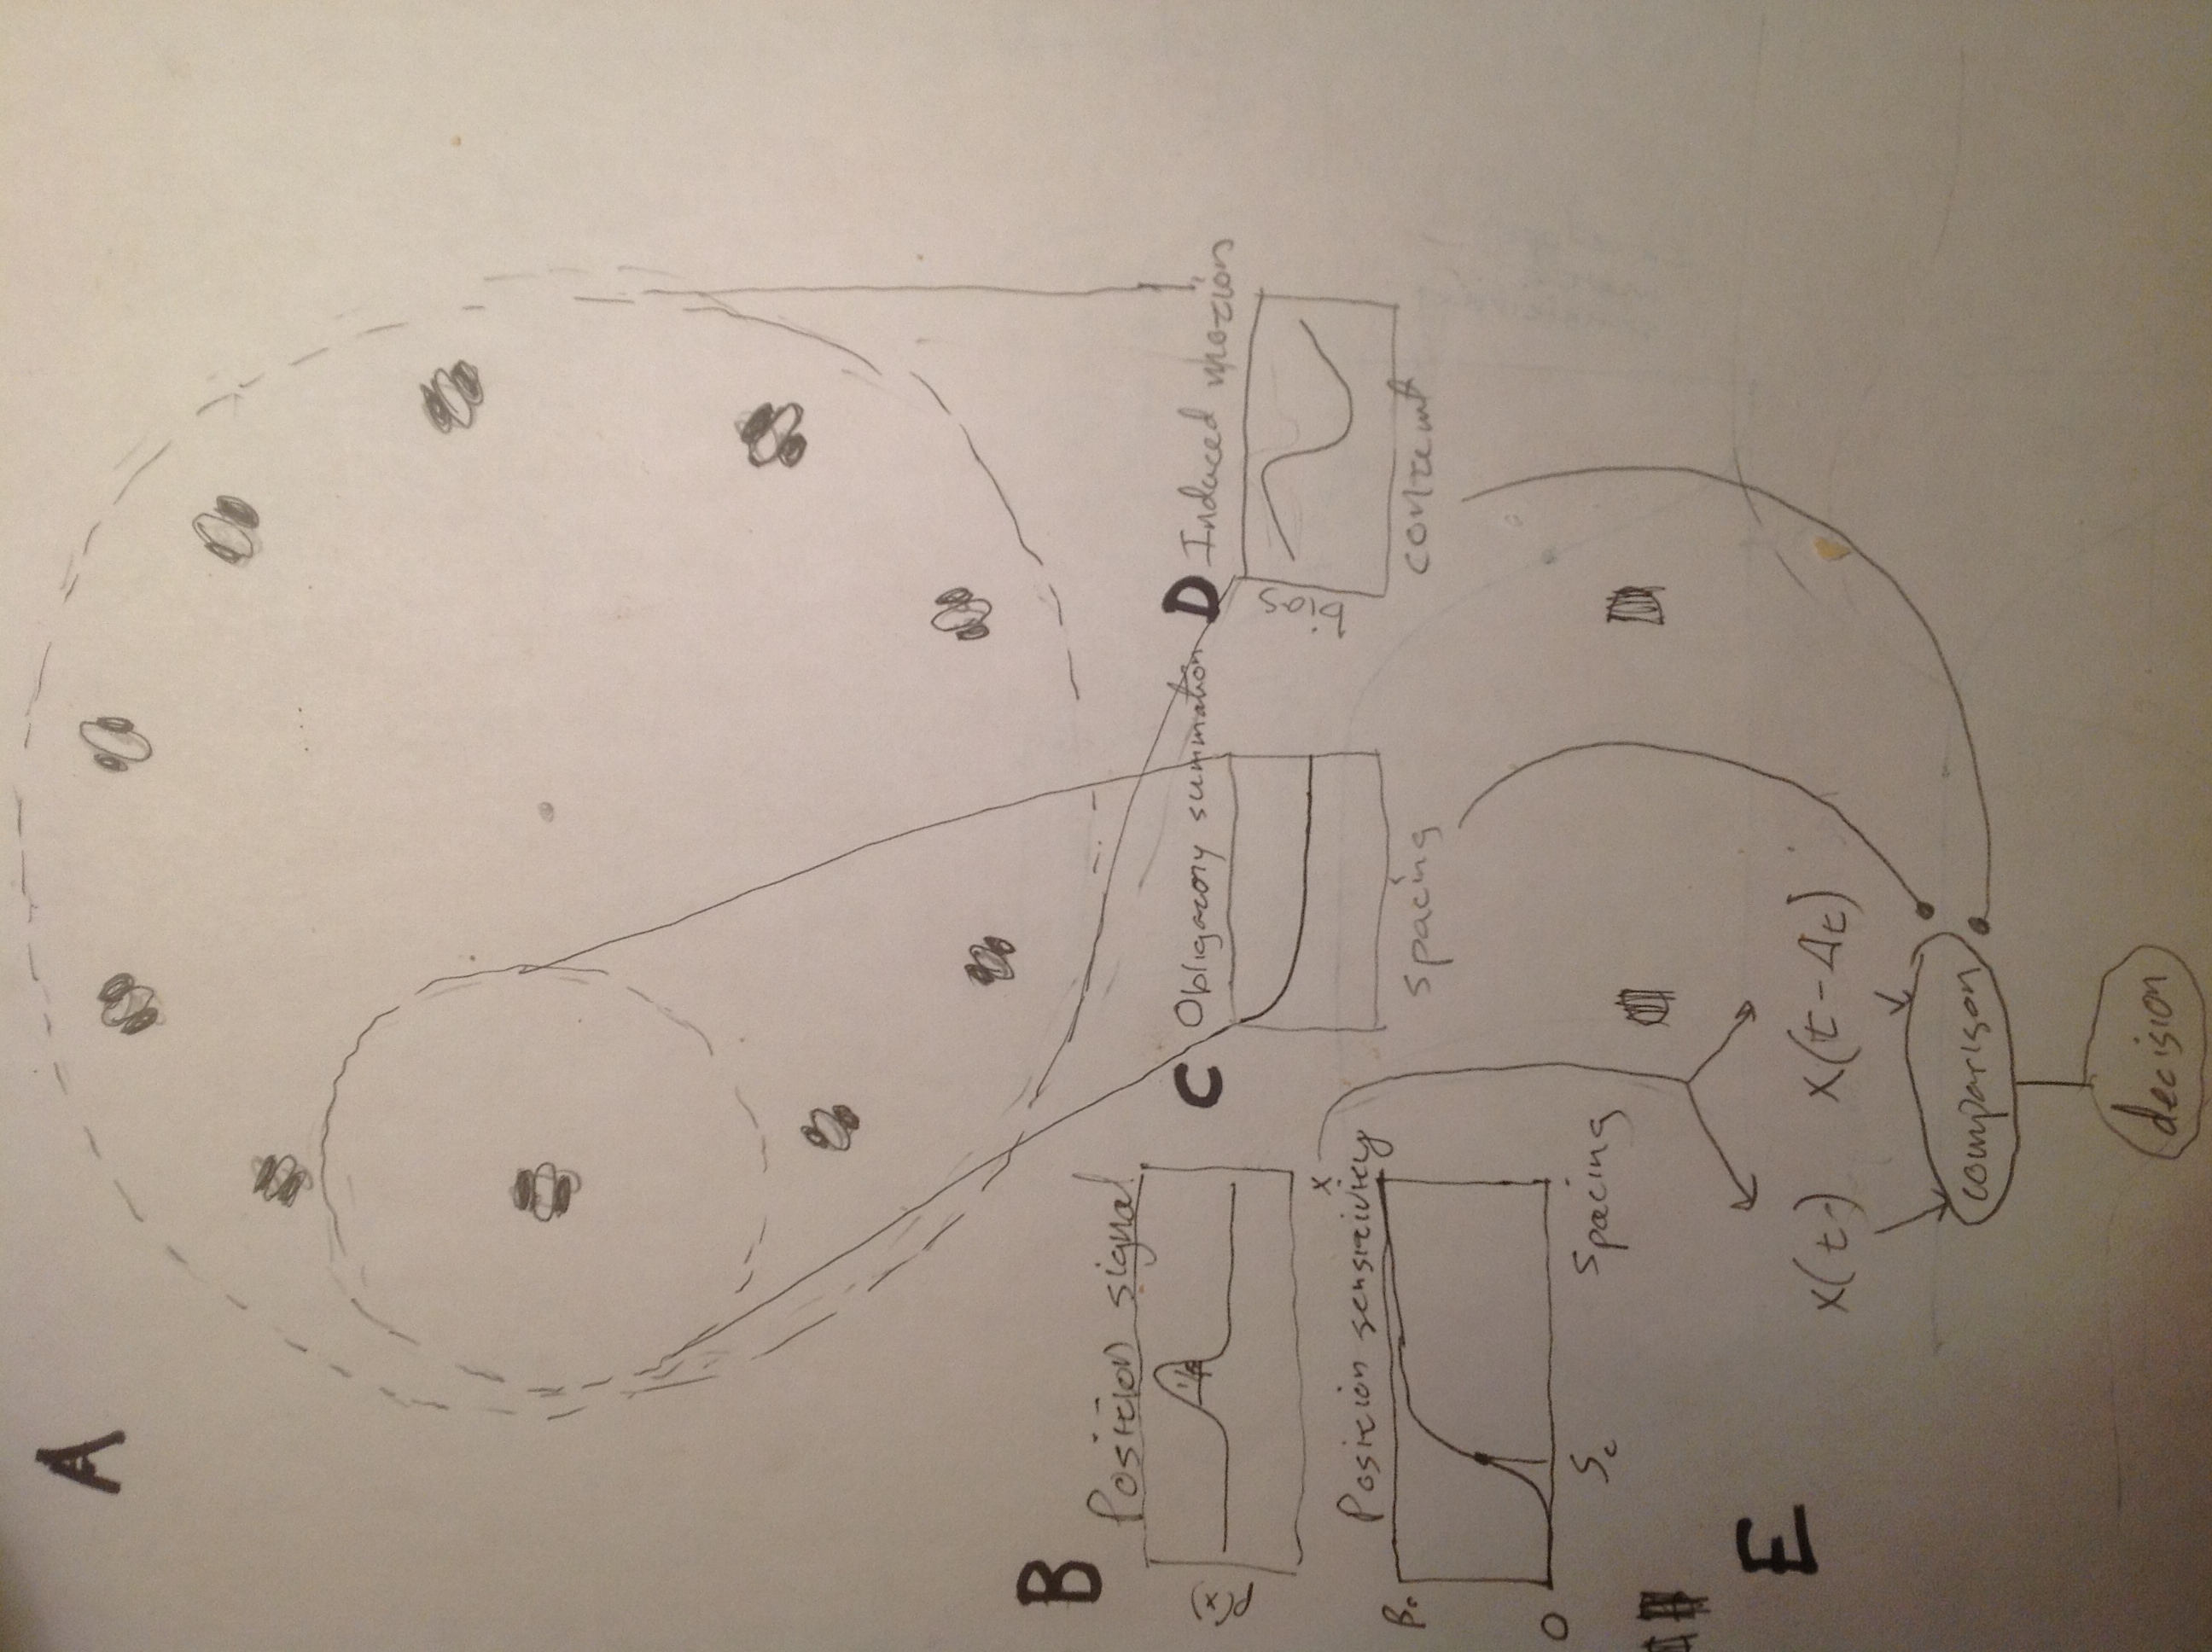 A
B
Position signal
P(x)
x
Position sensitivity
βₒ
0
Sc
Spacing
C
Obligatory summation
spacing
D
Induced motion
bias
content
E
x(t)
x(t-Δt)
comparison
decision